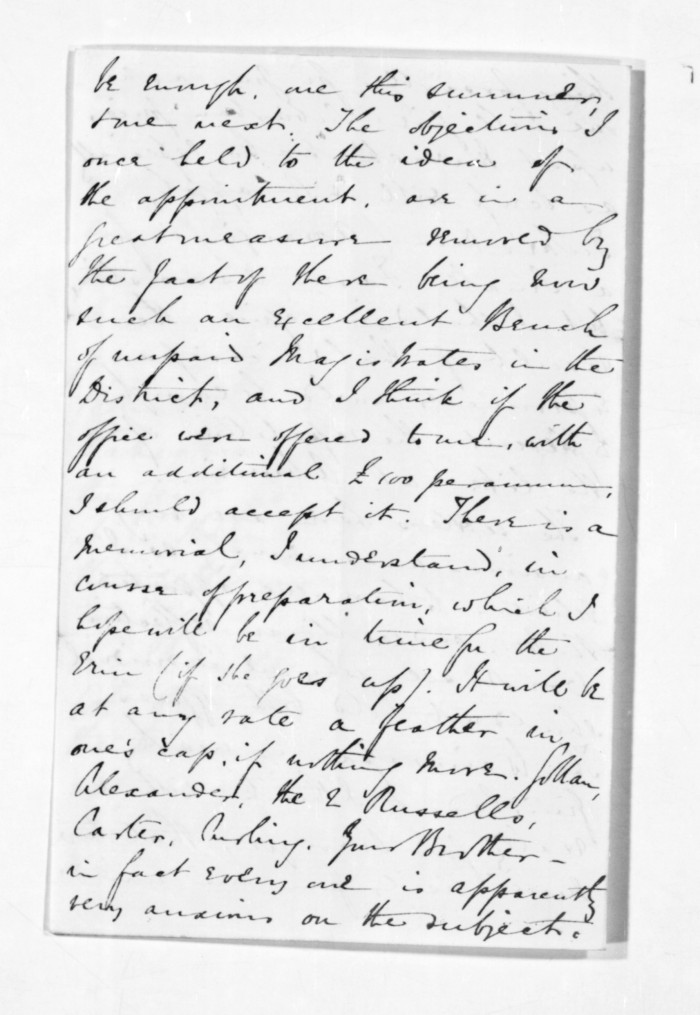 be enough, one this summer,
& one next. The objections I
once held to the idea of
the appointment, are in a
great measure removed by
the fact of there being now
such an excellent Bench
of unpaid Magistrates in the
District, and I think if the
office were offered to me, with
an additional £100 per annum,
I should accept it. There is a
memorial, I understand, in
course of preparation, which I
hope will be in time for the
Erin (if she goes up). It will be
at any rate a feather in
one's cap, if nothing more. Gollan,
Alexander, the 2 Russells,
Carter, Curling, Your Brother –
in fact every one is apparently
very anxious on the subject.